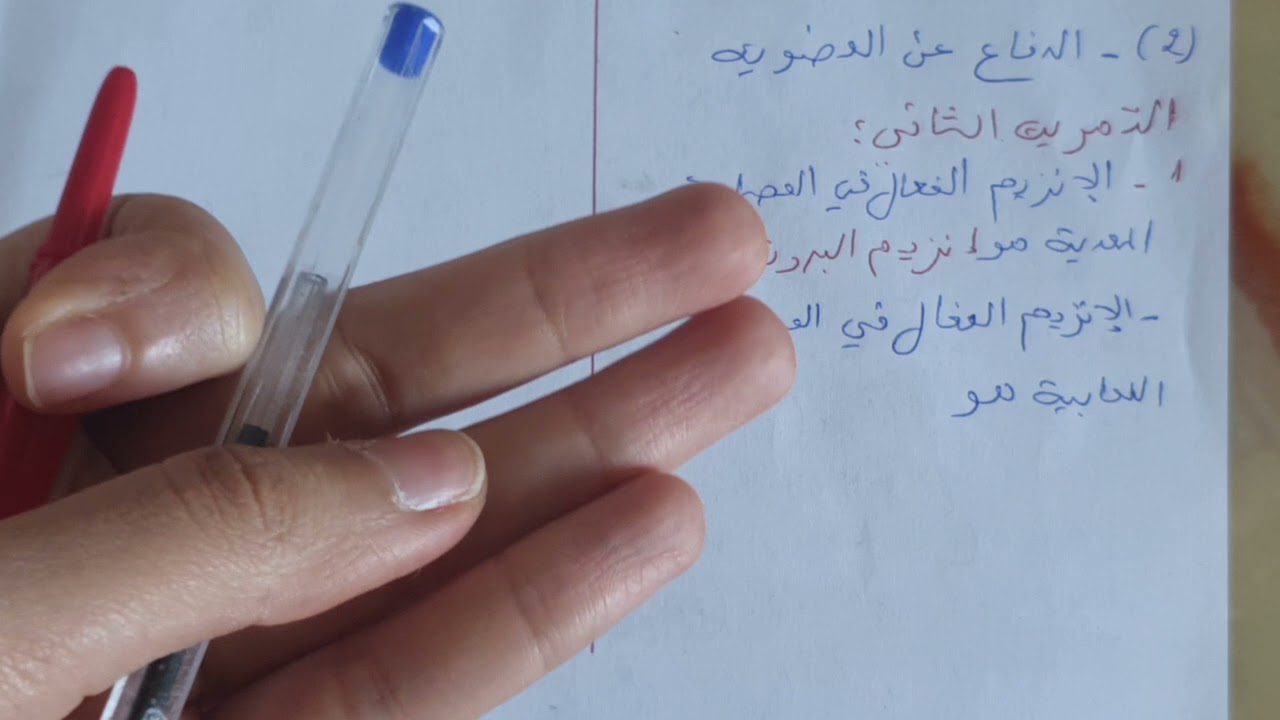 (2) - الدفاع عن العضوية
التمرين الثاني:
1 - الإنزيم الفعال في
المعدية هو إنزيم
- الإنزيم الفعال في
اللعابية هو